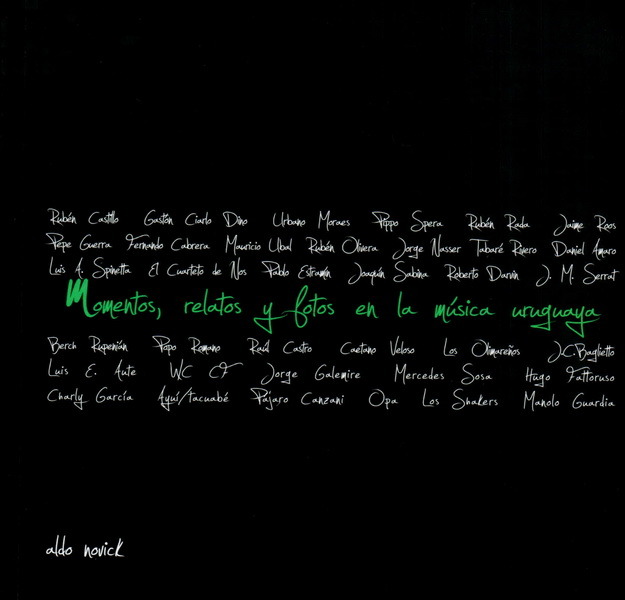 Rubén Castillo Gastón Ciarlo Dino Urbano Moraes Pippo Spera Rubén Rada Jaime Roos
Pepe Guerra Fernando Cabrera Mauricio Ubal Rubén Olivera Jorge Nasser Tabaré Rivero Daniel Amaro
Luis A. Spinetta El Cuarteto de Nos Pablo Estramín Joaquín Sabina Roberto Darvin J. M. Serrat
Momentos, relatos y fotos en la música uruguaya
Berch Rupenián Papo Romano Raúl Castro Caetano Veloso Los Olimareños J.C.Baglietto
Luis E. Aute WC Jorge Galemire Mercedes Sosa Hugo Fattoruso
Charly García Ayuí/tacuabé Pájaro Canzani Opa Los Shakers Manolo Guardia
aldo novick